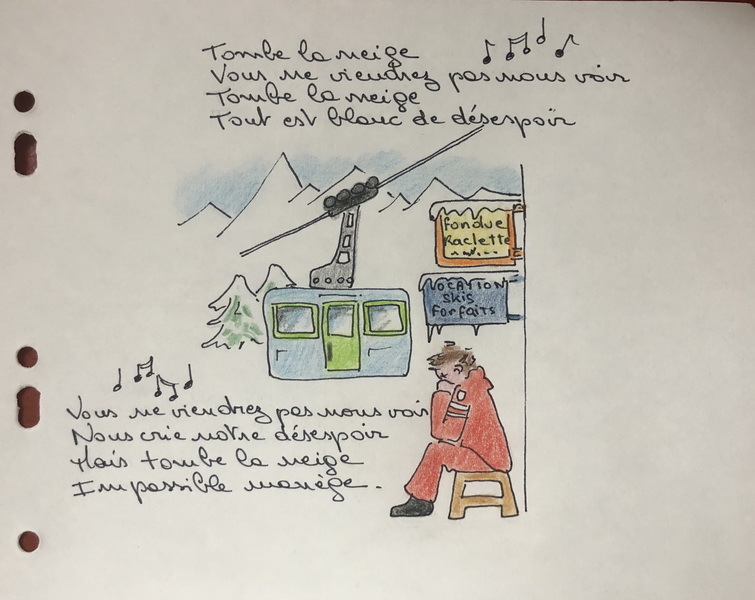 Tombe la neige
Vous ne viendrez pas nous voir
Tombe la neige
Tout est blanc de désespoir
Fondue
Raclette
VOCATION
Skis
Forfaits
Vous ne viendrez pas nous voir
Nous crie notre désespoir
Mais tombe la neige
Impossible manège.